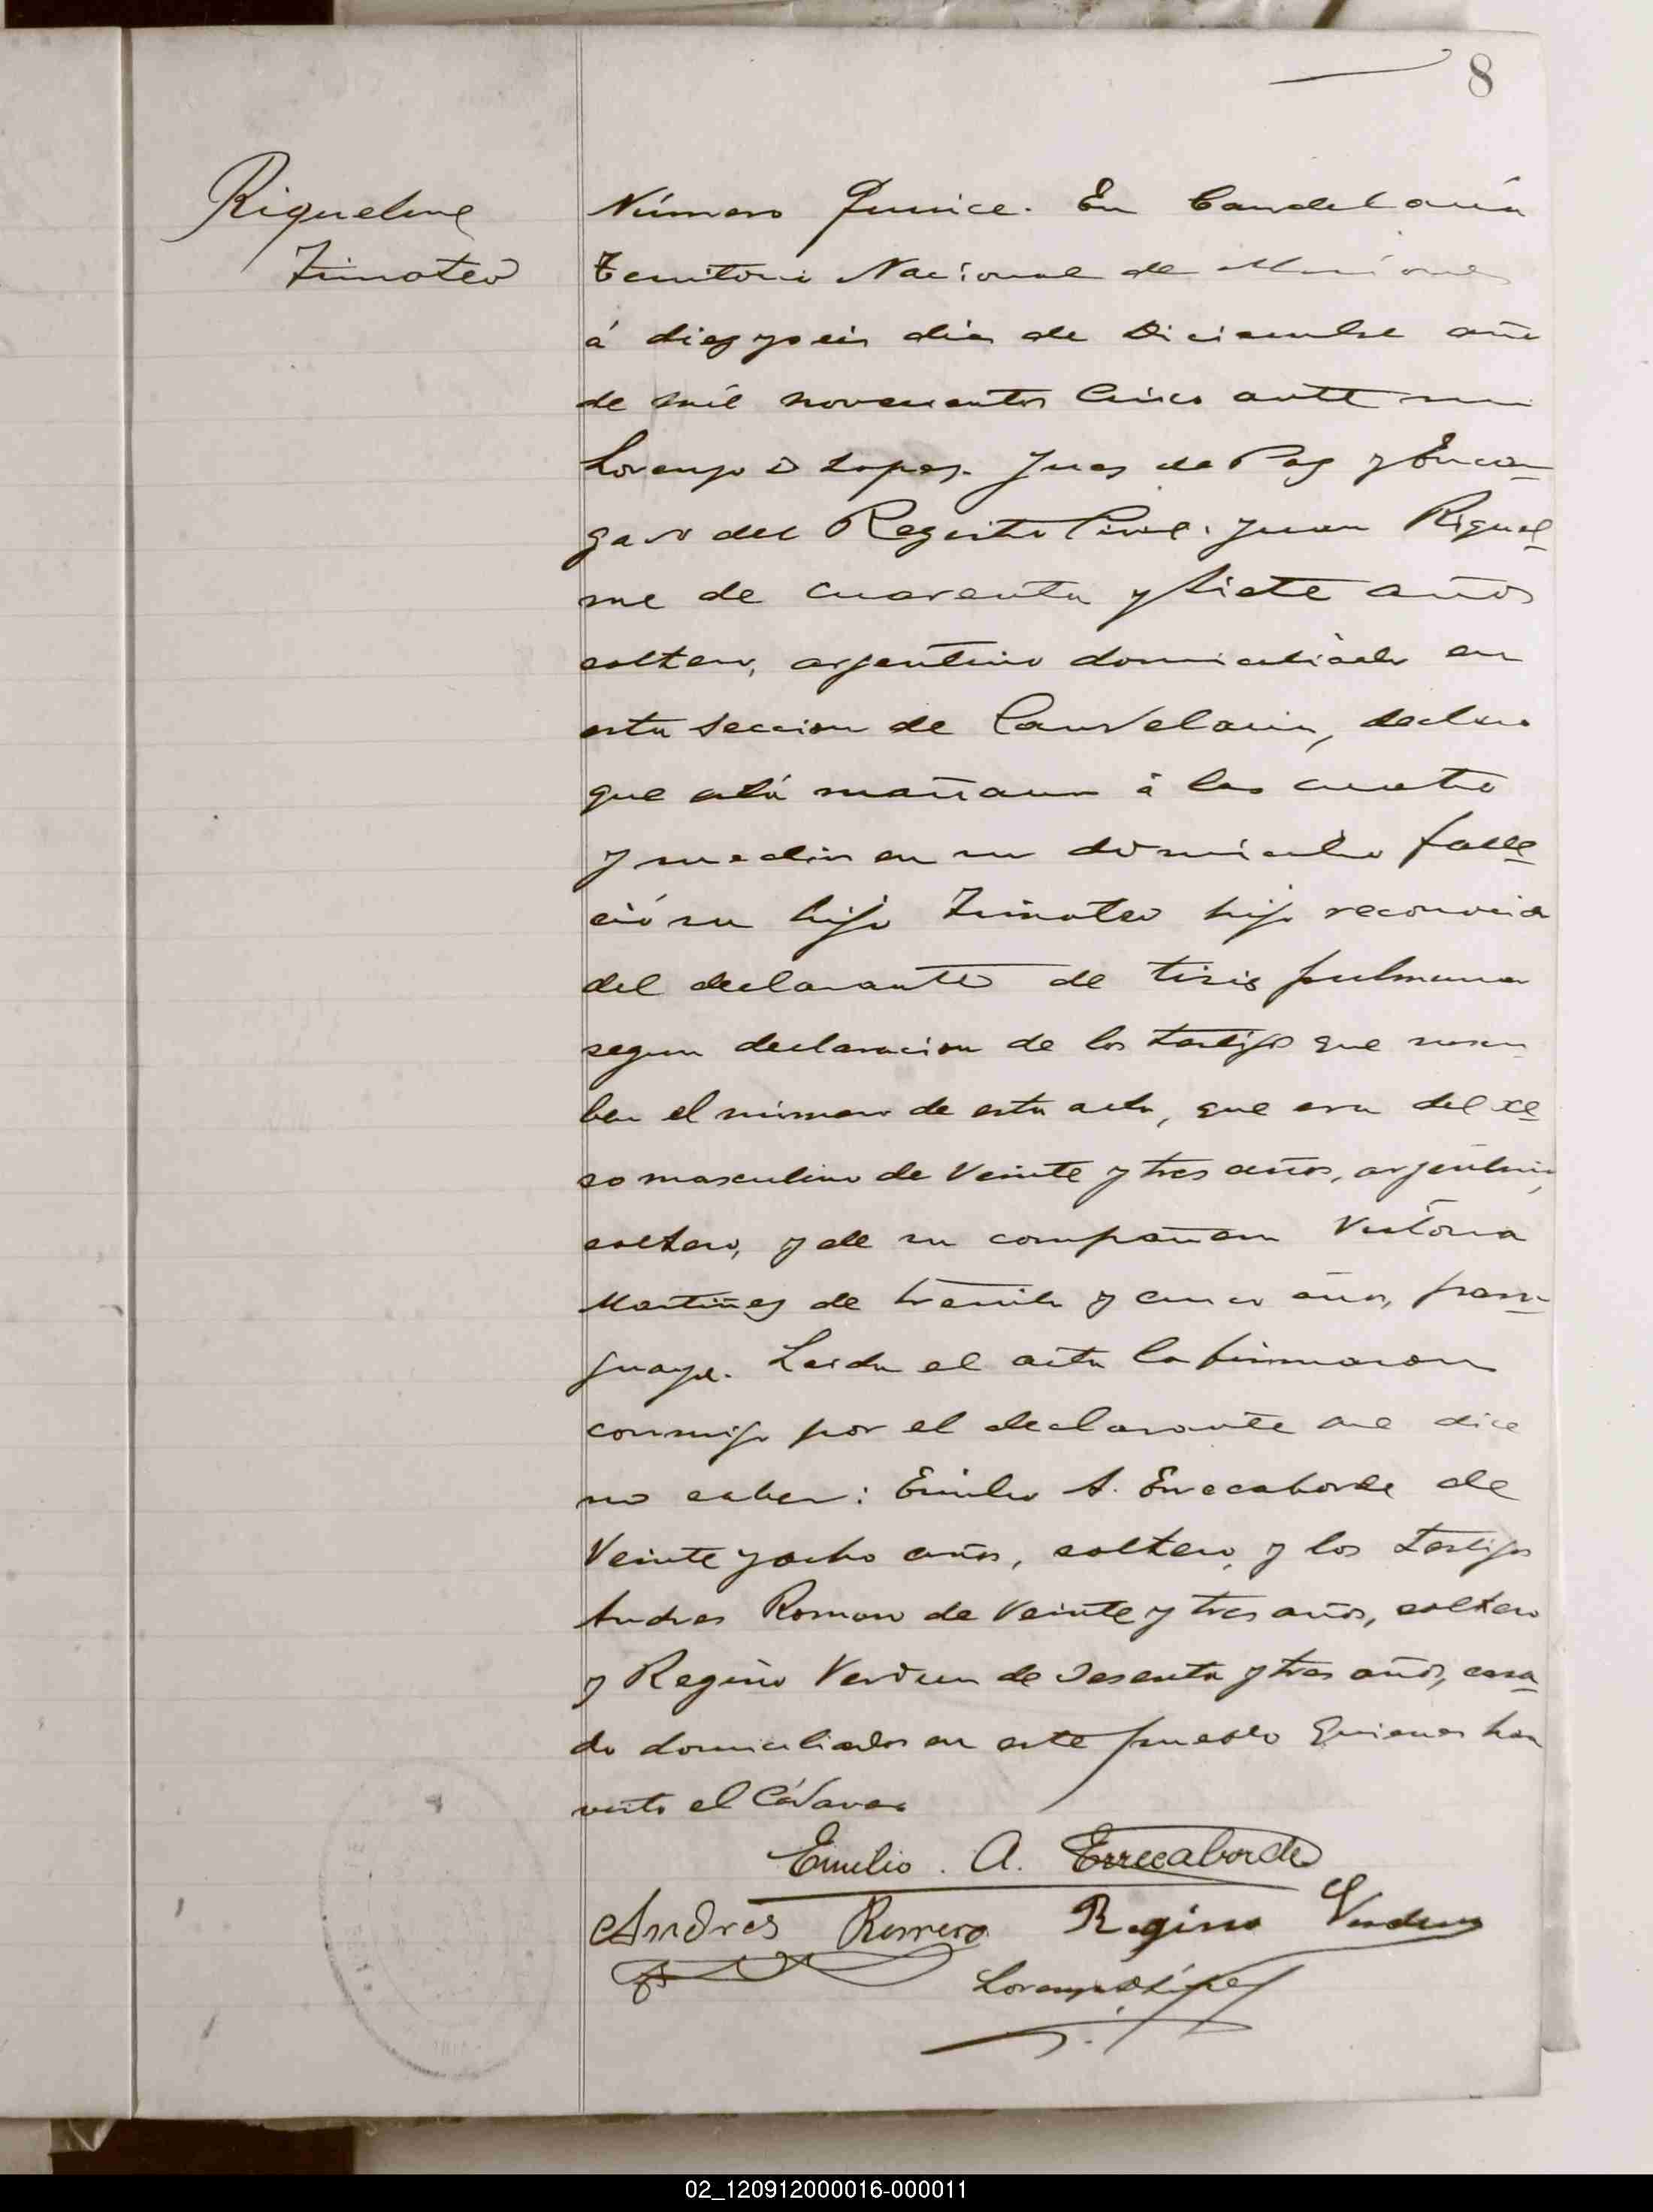 8
Riquelme
Timoteo
Número Quince. En Candelaria
Territorio Nacional de Misiones
á diez y seis dias de Diciembre año
de mil novecientos Cinco ante mi
Lorenzo D Lopez. Juez de Paz y Encar-
gado del Registro Civil. Juan Riquel-
me de cuarenta y siete años
soltero, argentino domiciliado en
esta seccion de Candelaria, declaro
que está mañana á las cuatro
y media en su domicilio falle-
ció su hijo Timoteo hijo reconocido
del declarante de tisis pulmonar
segun declaracion de los testigos que suscri-
ben el número de esta acta, que era del se-
so masculino de Veinte y tres años, argentino,
soltero, y de su compañera Victoria
Martinez de treinta y cinco años, para-
guaya. Leida el acta la firmaron
conmigo por el declarante que dice
no saber: Emilio A. Errecaborde de
Veinte y ocho años, soltero, y los testigos
Andres Romero de Veinte y tres años, soltero
y Regino Verdun de Sesenta y tres años, casa-
do domiciliados en este pueblo Quienes han
visto el Cádaver
Emilio. A. Errecaborde
Andres Romero Regino Verdun
Lorenzo D López
02_120912000016-000011